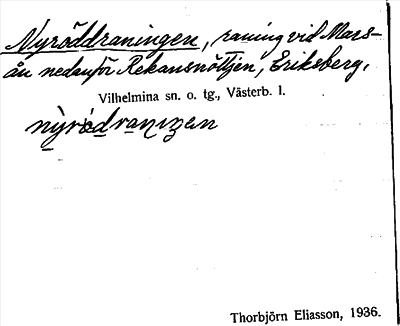 Nyröddraningen, raning vid Mars-
ån nedanför Rekansnöttjen, Eriksberg,
Vilhelmina sn. o. tg., Västerb. l.
Thorbjörn Eliasson, 1936.